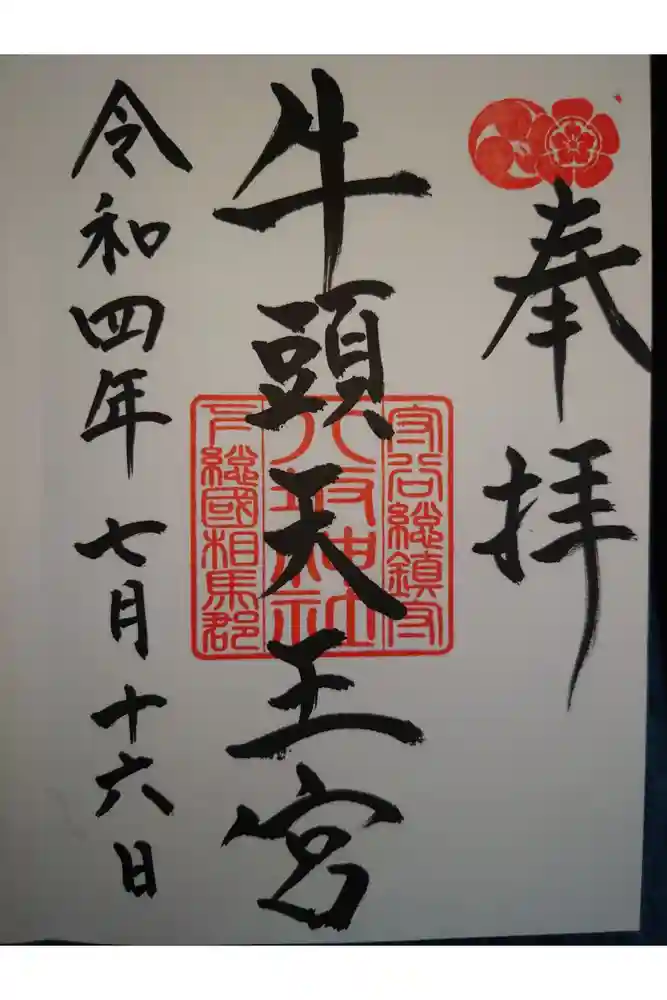 奉拝
牛頭天王宮
守谷総鎮守
八坂神社
下総國相馬郡
令和四年七月十六日